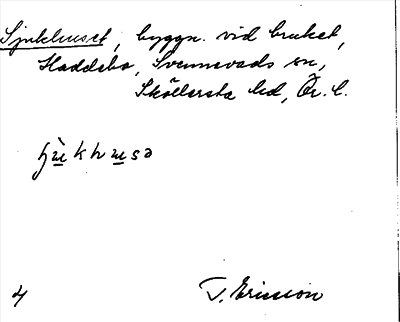 Sjukhuset, byggn. vid bruket,
Haddebo, Svennevads sn,
Sköllersta hd, Ör. l.
ʃu̲khu̲sə
4
T. Ericsson